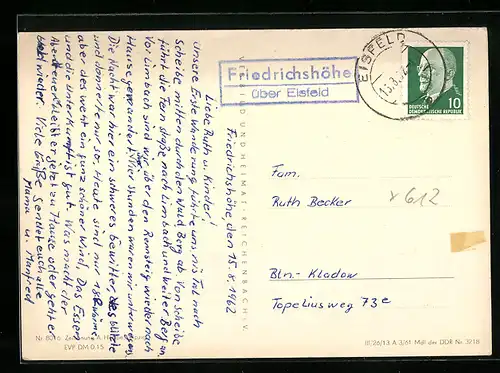 Friedrichshöhe, den 15.8.1962
Liebe Ruth u. Kinder!
Unsere Erste Wanderung führte uns ins Tal nach
Scheibe, mitten durch den Wald Berg ab. Von Scheibe
führt die Fern straße nach Limbach und weiter Berg an
Vor Limbach sind wir über den Rennsteig wieder nach
Hause gewandert. Vier Stunden waren wir unterwegs.
Die Nacht war hier ein schweres Gewitter, das blitzte
und donnerte nur so. Heute sind nur 18° Wärme
aber des west ein ganz schöner Wind. Das Essen
und die Unterkunft ist gut. Was macht der
Abenteuer? Bleibt er jetzt zu Hause oder geht er
bald wieder. Viele Grüße Sendet euch alle
Mama u. Manfred
Friedrichshöhe
über Eisfeld
EISFELD
10
DEUTSCHE
DEMOKRATISCHE REPUBLIK
VERLAG BILD UND HEIMAT REICHENBACH I. V.
Fam.
Ruth Becker
x 612
Bln.- Kladow
Topeliusweg 73e
EVP DM 0.15
III/26/13 A 3/61 MdI der DDR Nr. 3218